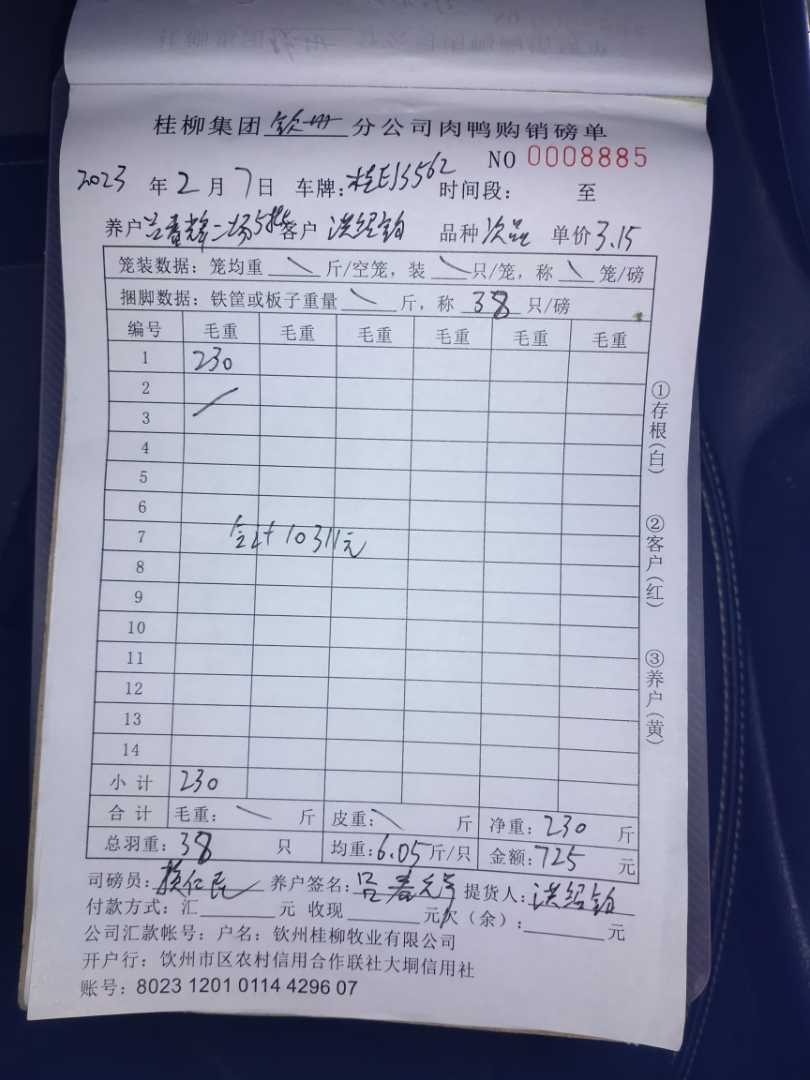 桂柳集团 钦州 分公司肉鸭购销磅单
NO 0008885
2023 年 2 月 7 日 车牌: 桂E13562 时间段: 至
养户 二场5批 客户 洪绍钧 品种 次品 单价 3.15
笼装数据: 笼均重 \ 斤/空笼, 装 \ 只/笼, 称 \ 笼/磅
捆脚数据: 铁筐或板子重量 \ 斤, 称 38 只/磅
编号 毛重 毛重 毛重 毛重 毛重 毛重
1 230
2
3
4
5
6
7 合计10311元
8
9
10
11
12
13
14
小计 230
合计 毛重: \ 斤 皮重: \ 斤 净重: 230 斤
总羽重: 38 只 均重: 6.05 斤/只 金额: 725 元
司磅员: 养户签名: 提货人: 洪绍钧
付款方式: 汇 元 收现 元 欠(余): 元
公司汇款帐号: 户名: 钦州桂柳牧业有限公司
开户行: 饮州市区农村信用合作联社大垌信用社
账号: 8023 1201 0114 4296 07
①存根(白)
②客户(红)
③养户(黄)